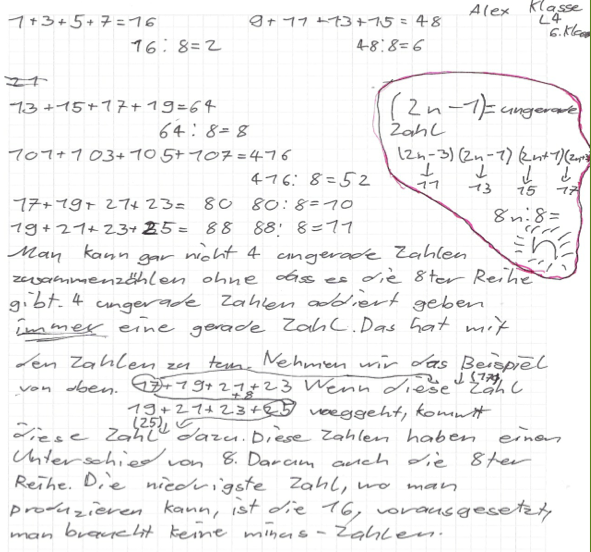 Alex Klasse
L4
6. Klasse
1+3+5+7=16
16:8=2
9+11+13+15=48
48:8=6
21
13+15+17+19=64
64:8=8
101+103+105+107=416
416:8=52
17+19+21+23= 80 80:8=10
19+21+23+25= 88 88:8=11
(2n-1)=ungerade
Zahl
(2n-3)(2n-1)(2n+1)(2n+3)
↓ ↓ ↓ ↓
11 13 15 17
8n:8=
n
Man kann gar nicht 4 ungerade Zahlen
zusammenzählen ohne dass es die 8ter Reihe
gibt. 4 ungerade Zahlen addiert geben
immer eine gerade Zahl. Das hat mit
den Zahlen zu tun. Nehmen wir das Beispiel
von oben. 17+19+21+23 Wenn diese ↓(17) Zahl
+8
19+21+23+25 weggeht, kommt
(25)↓
diese Zahl dazu. Diese Zahlen haben einen
Unterschied von 8. Darum auch die 8ter
Reihe. Die niedrigste Zahl, wo man
produzieren kann, ist die 16, vorausgesetzt,
man braucht keine minus-Zahlen.